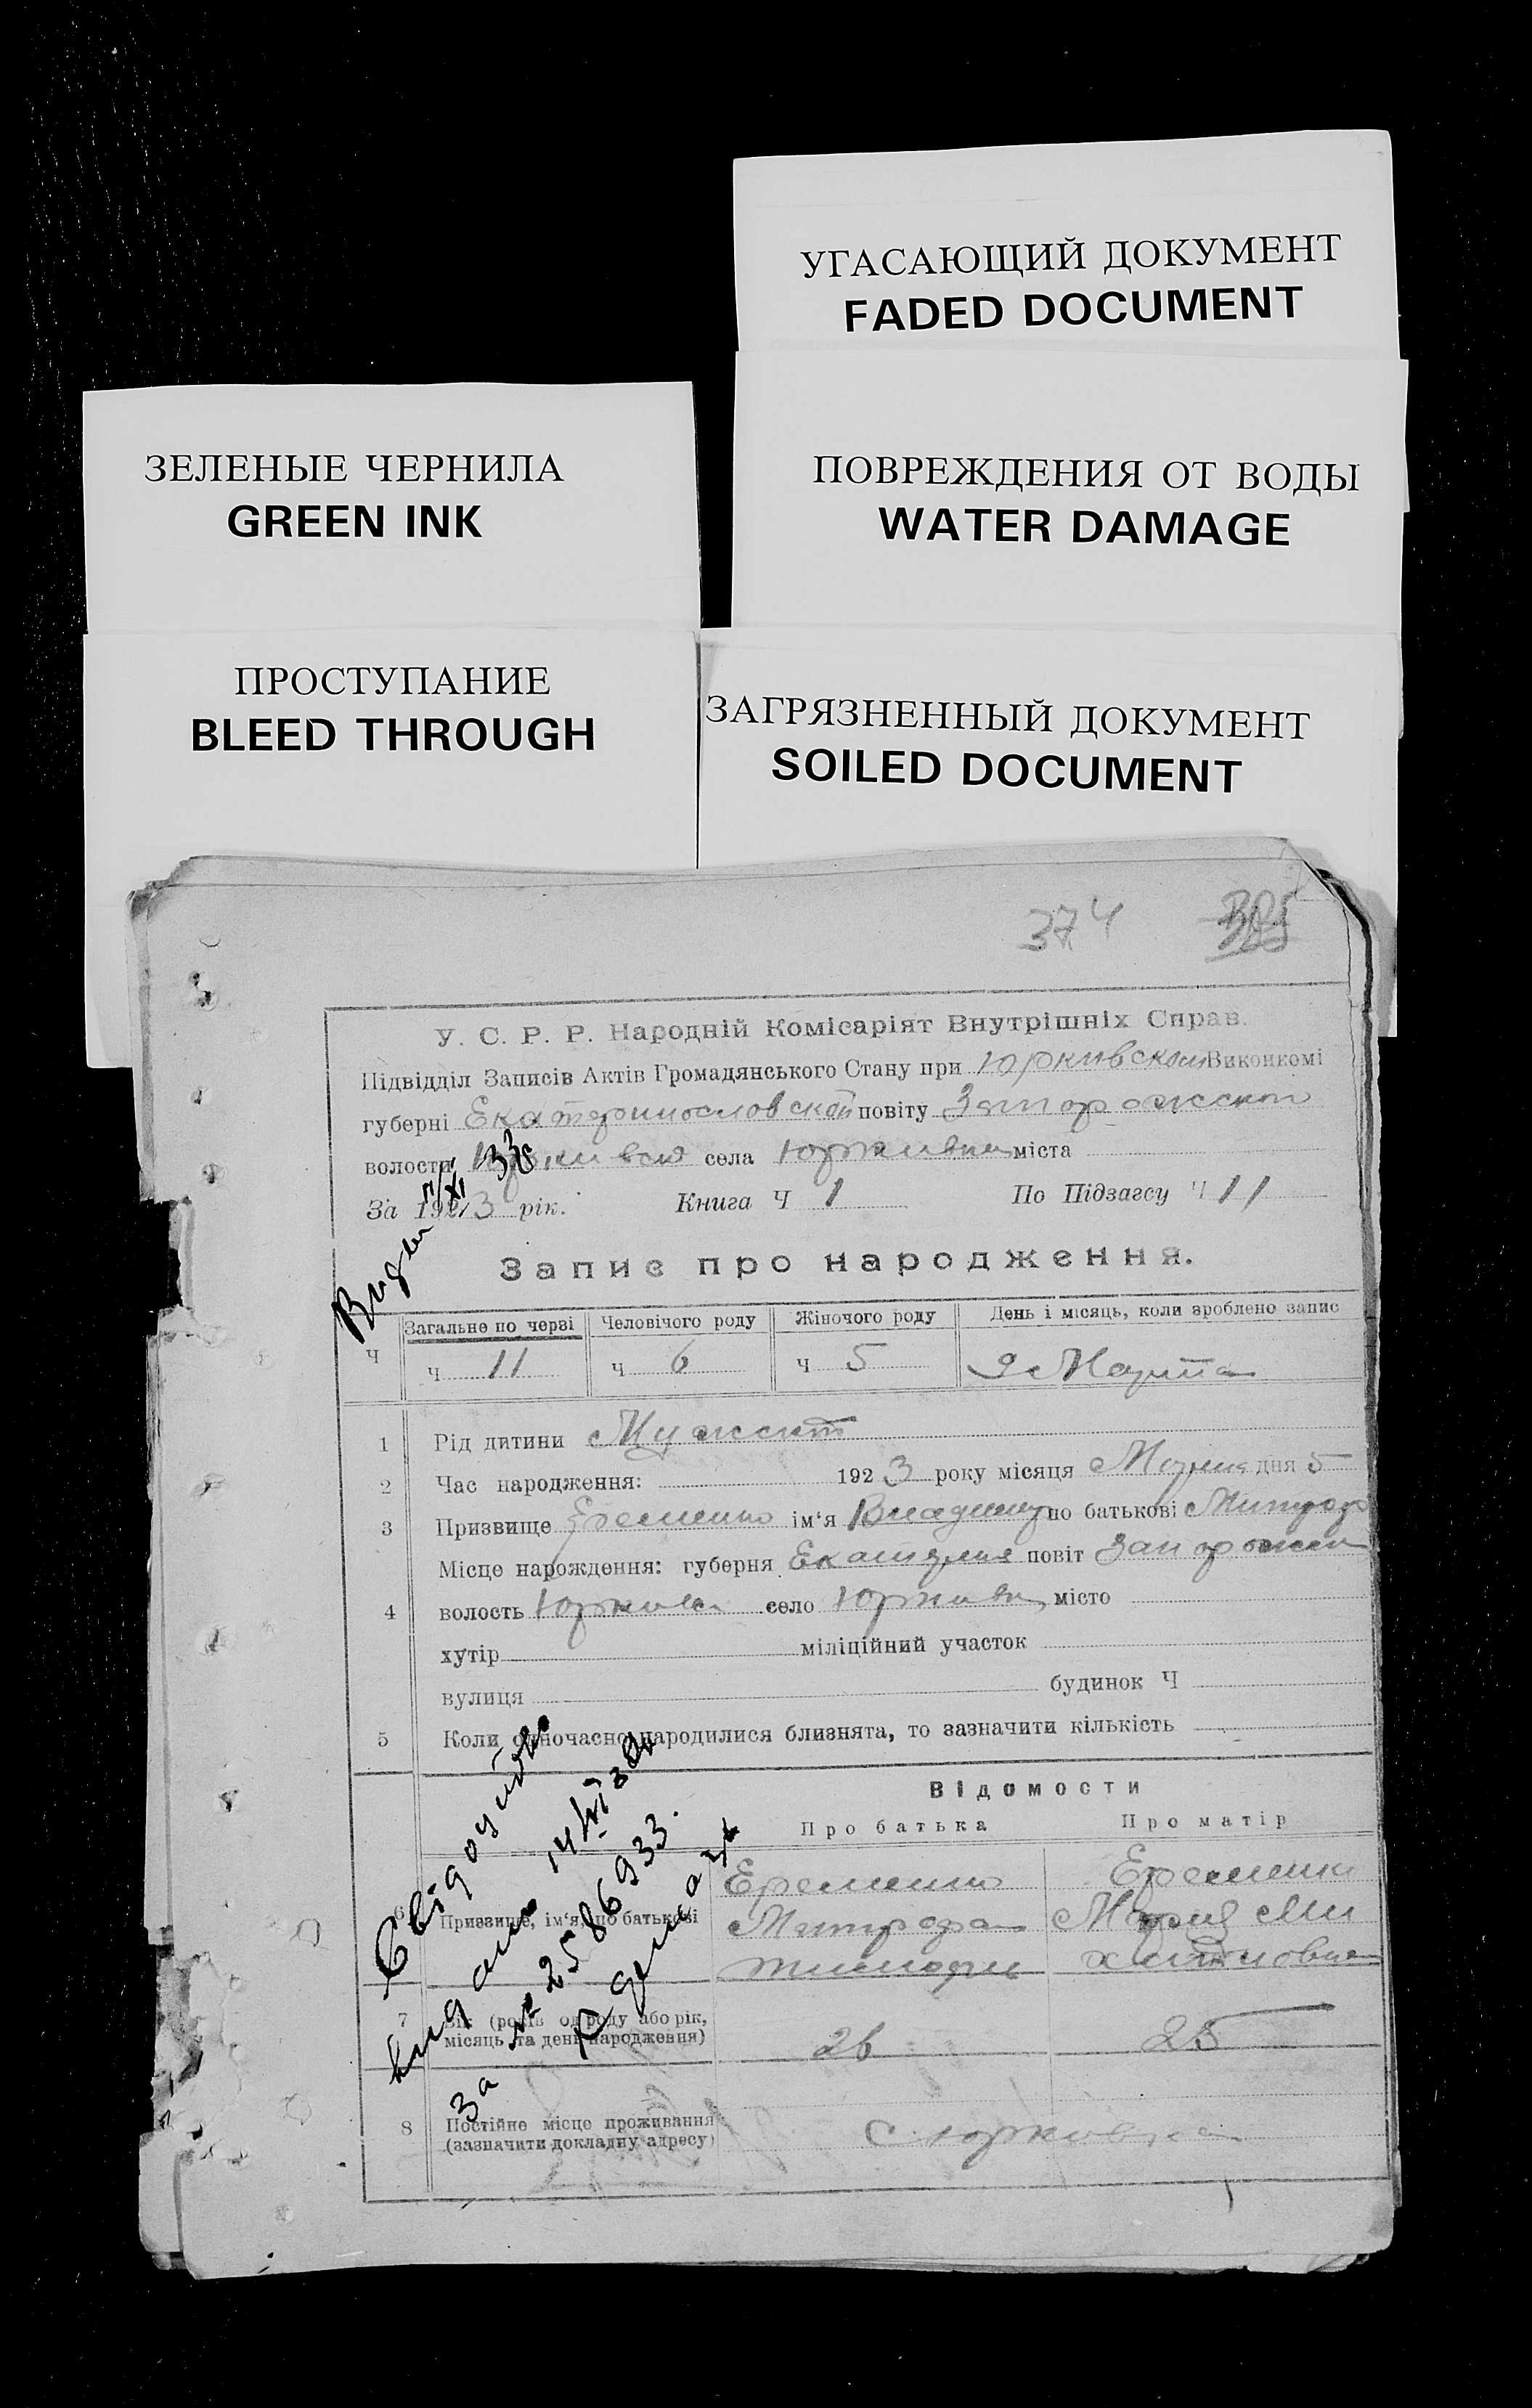 УГАСАЮЩИЙ ДОКУМЕНТ
FADED DOCUMENT
ЗЕЛЕНЫЕ ЧЕРНИЛА
GREEN INK
ПОВРЕЖДЕНИЯ ОТ ВОДЫ
WATER DAMAGE
ПРОСТУПАНИЕ
BLEED THROUGH
ЗАГРЯЗНЕННЫЙ ДОКУМЕНТ
SOILED DOCUMENT
374
У. С. Р. Р. Народній Комісаріят Внутрішніх Справ.
Підвідділ Записів Актів Громадянського Стану при Юркивском Виконкомі
губерні Екатеринославской повіту Запорожской
волости села Юркивки міста
За 1923 рік. Книга Ч 1 По Підзагсу Ч 11
Запис про народження.
Загальне по черзі Человічого роду Жіночого роду День і місяць, коли зроблено запис
Ч ч 11 ч 6 ч 5 9 Марта
1 Рід дитини Мужскт
2 Час народження: 1923 року місяця Марта дня 5
3 Призвище Еременко ім'я Владимир по батькові Митроф
Місце нарождення: губерня повіт Запорожск
4 волость село місто
хутір міліційний участок
вулиця будинок Ч
5 Коли одночасно народилися близнята, то зазначити кількість
Відомости
Про батька Про матір
Еременко Еременко
6 Призвище, ім'я, по батькові Митрофан Мария Ми
7 Вік (років од роду або рік,
місяць та день народження) 26 25
8 Постійне місце проживання
(зазначити докладну адресу) с. Юрковка
Свідоцтво
видано
за № 2586933.